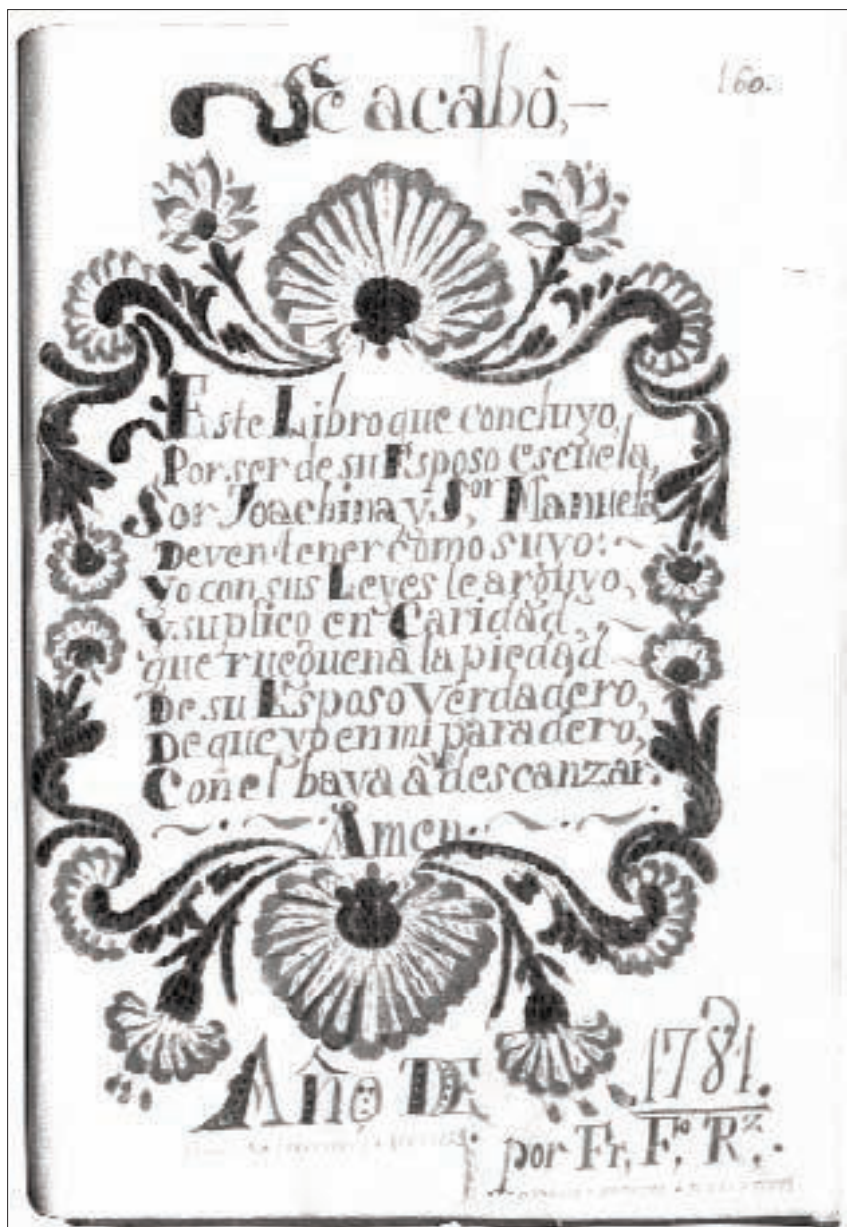 160.
Se acabò,
Este Libro que concluyo,
Por ser de su Esposo escuela,
Sor Joachina y Sor Manuela
Deven tener como suyo:
Yo con sus Leyes le arguyo,
y suplico en Caridad,
que rueguen â la piedad
De su Esposo Verdadero,
De que yo en mi paradero,
Con el vaya â descanzar.
Amen.
Año DE 1781.
por Fr, F.co, R.z,.